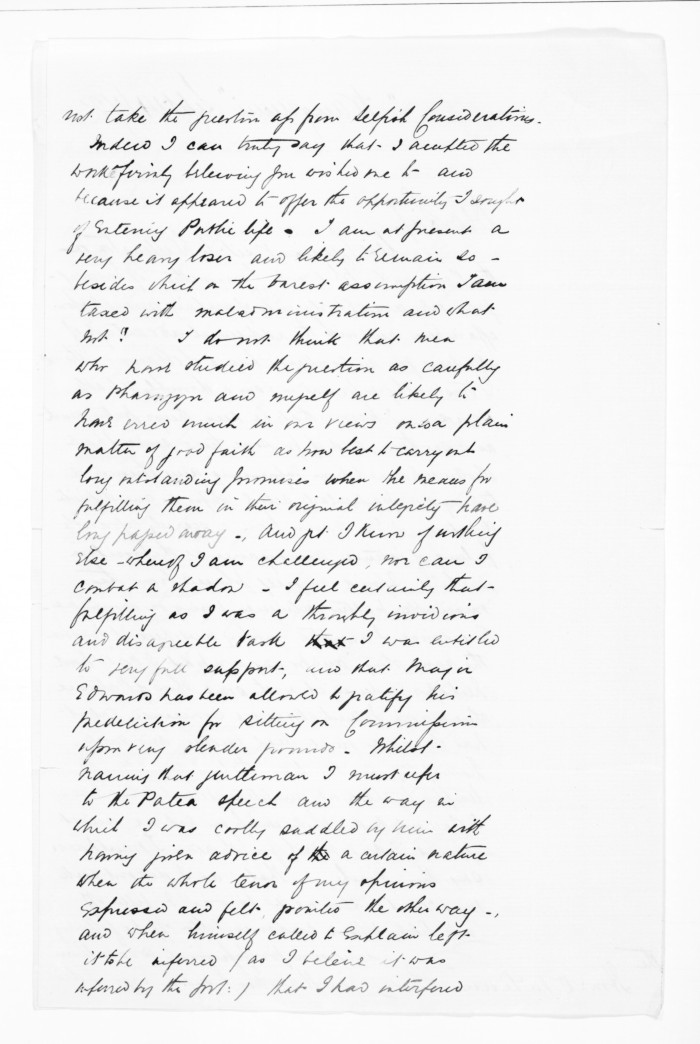 not take the question up from selfish Considerations.
Indeed I can truly say that I accepted the
work firmly believing you wished me to and
because it appeared to offer the opportunity I sought
of Entering Public life. I am at present a
very heavy loser and likely to remain so -
besides which on the barest assumption I am
taxed with maladministration and what
not? I do not think that men
who have studied the question as carefully
as and myself are likely to
have erred much in our views on a plain
matter of good faith as how best to carry out
long outstanding promises when the means for
fulfilling them in their original integrity have
long passed away -, and yet I know of nothing
Else - whereof I am challenged, nor can I
combat a shadow - I feel certainly that
fulfilling as I was a thoroughly invidious
and disagreeable task I was entitled
to very full support, and that Major
Edwards has been allowed to gratify his
predeliction for sitting on Commission
upon very slender grounds - Whilst
naming that gentleman I must refer
to the Patea speech and the way in
which I was coolly saddled by him with
having given advice of a certain nature
when the whole tenor of my opinions
Expressed and felt, pointed the other way -,
and when himself called to Explain left
it to be inferred (as I believe it was
inferred by the Govt:) that I had interfered